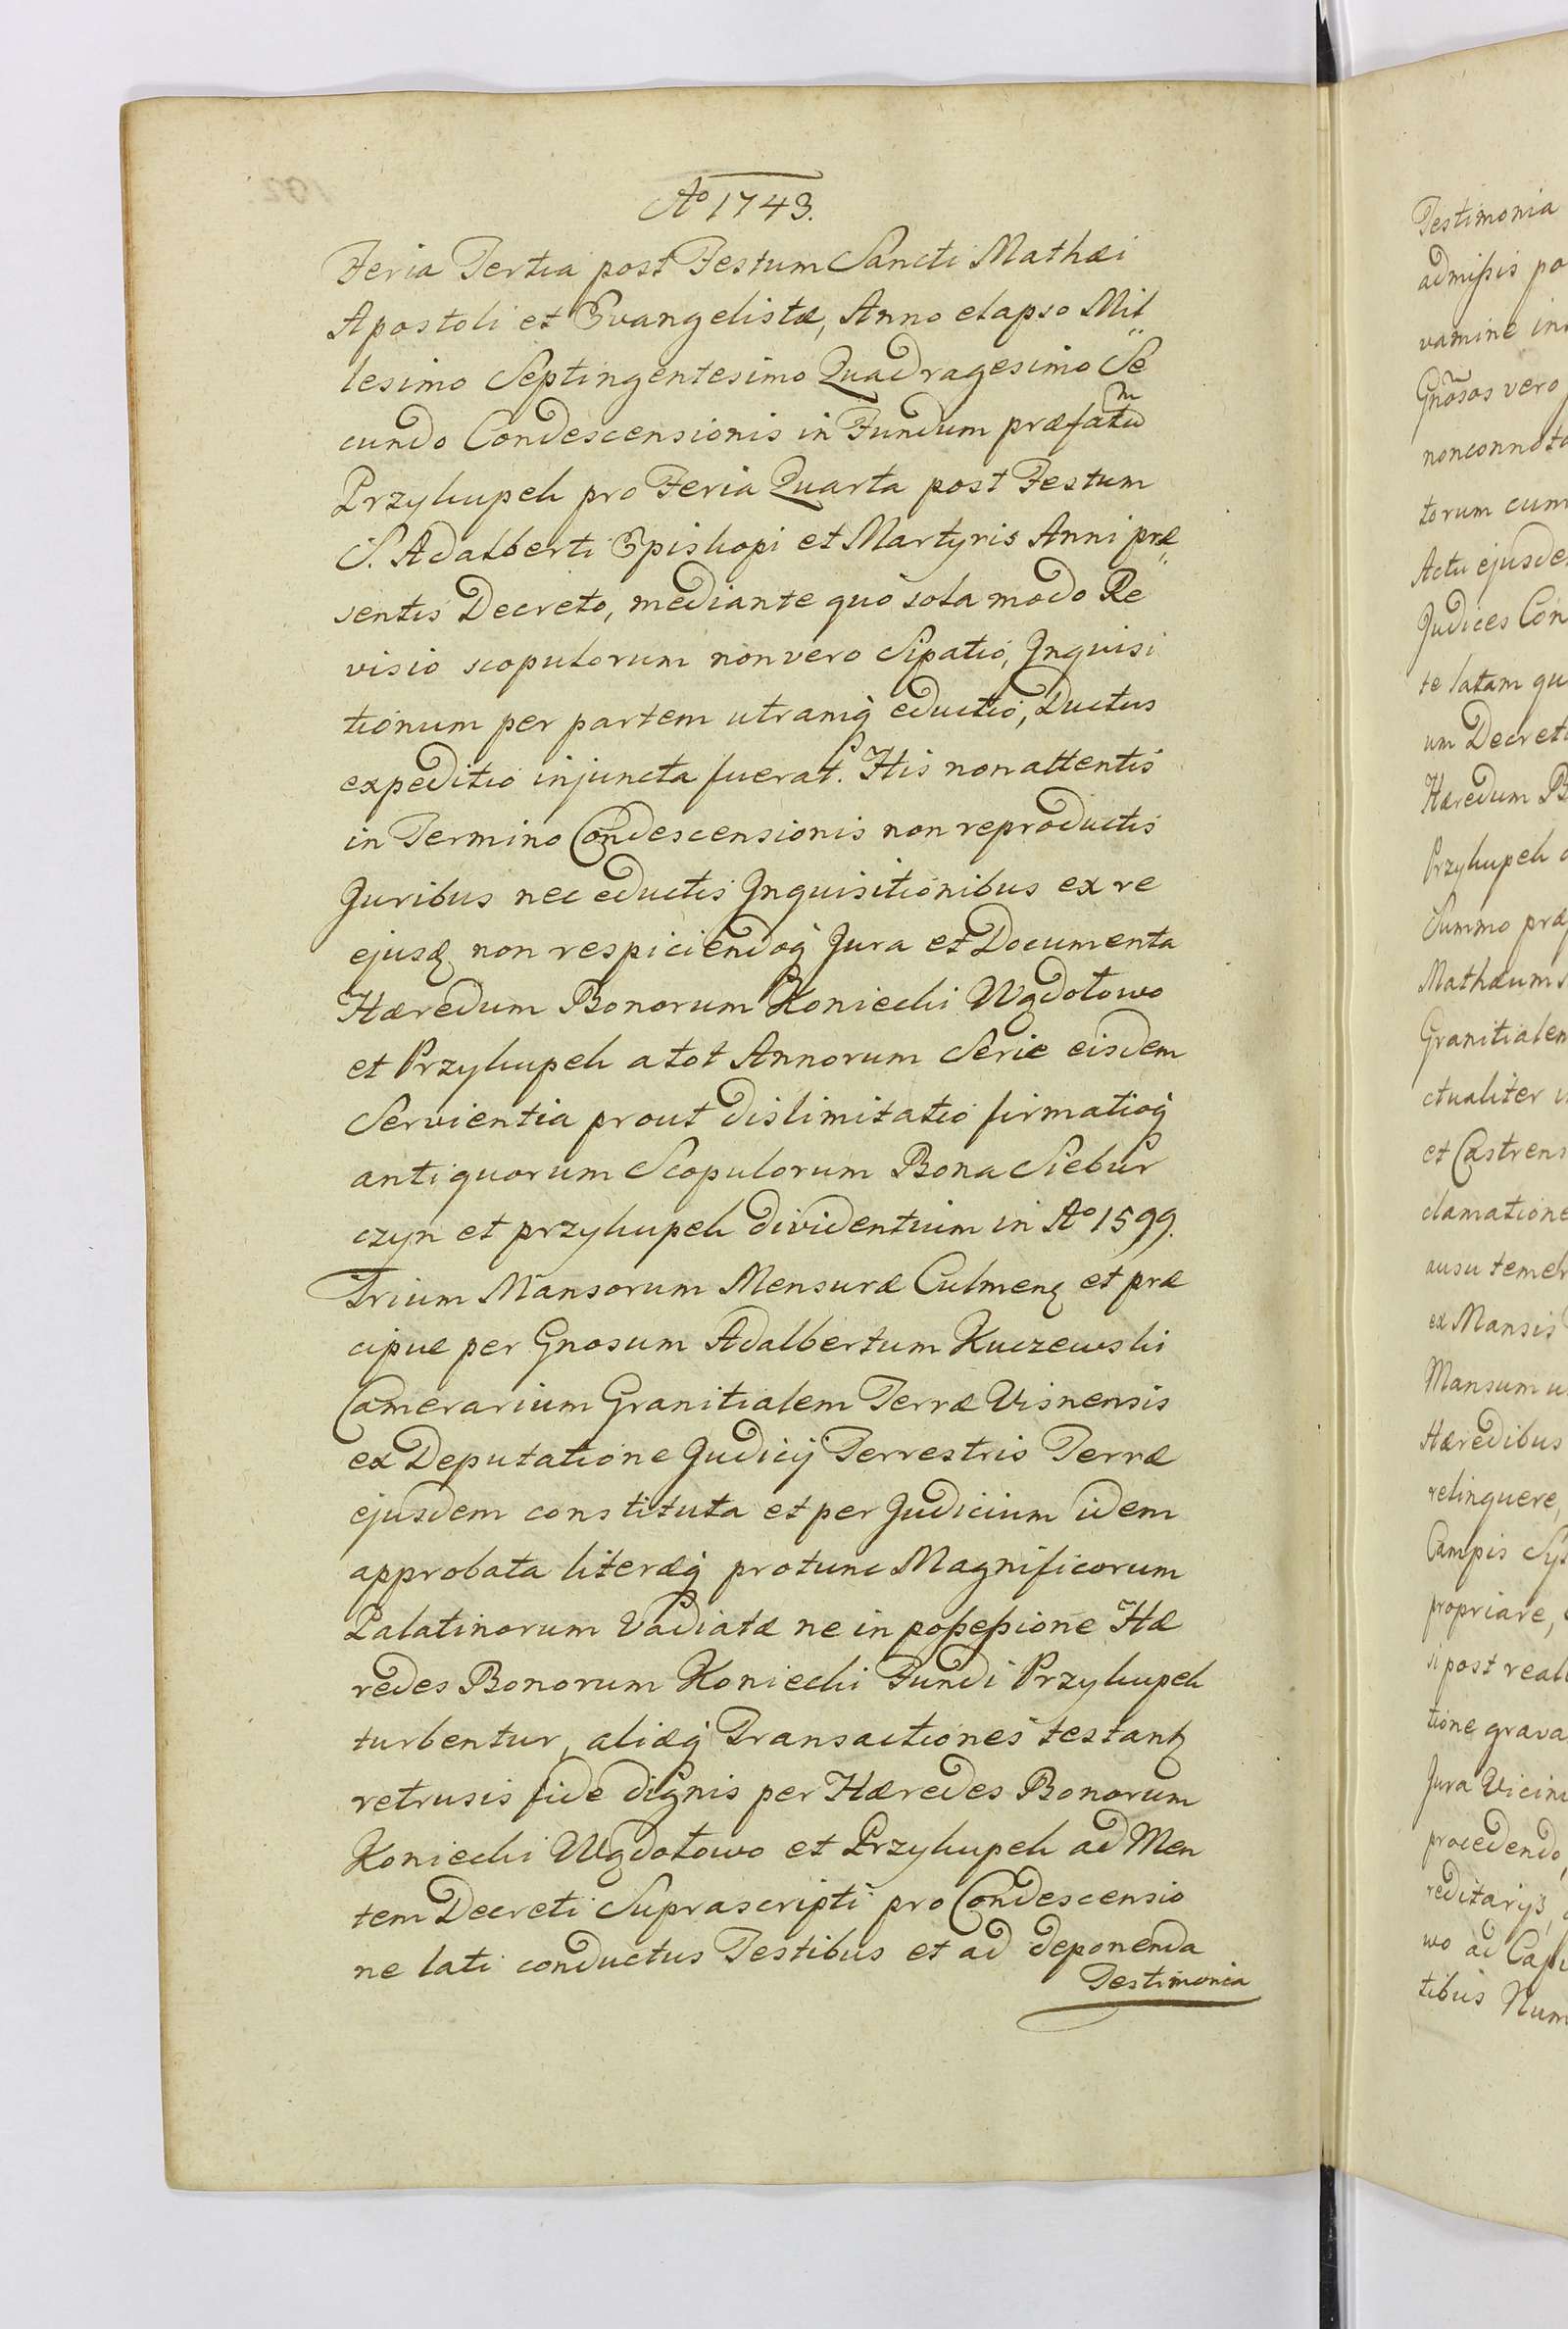 Aº 1743.
Feria Tertia post Festum Sancti Mathæi
Apostoli et Evangelistæ, Anno elapso Mil„
lesimo Septingentesimo Quadragesimo Se„
cundo Condescensionis in Fundum præfatũm
Przykupek pro Feria Quarta post Festum
S. Adalberti Episkopi et Martyris Anni præ„
sentis Decreto, mediante quo sola modo Re
visio scopulorum non vero Sipatio, Inquisi
tionum per partem utramq́ eductio, Ductus
expeditio injuncta fuerat. His non attentis
in Termino Condescensionis non reproductis
Juribus nec eductis Inquisitionibus ex re
ejusq̨ non respiciendoq́ Jura et Documenta
Hæredum Bonorum Koniecki Wądołowo
et Przykupek a tot Annorum Serie eisdem
Servientia prout dislimitatio firmatioq́
antiquorum Scopulorum Bona Siebur
czyn et przykupek dividentium in Aº 1599.
Trium Mansorum Mensuræ Culmenq̨ et præ
cipue per Gnosum Adalbertum Kuczewski
Camerarium Granitialem Terræ Visnensis
ex Deputatione Judicij Terrestris Terræ
ejusdem constituta et per Judicium idem
approbata literæq́ protunc Magnificorum
Palatinorum Vadiatæ ne in poßeßione Hæ
redes Bonorum Koniecki Fundi Przykupek
turbentur, aliæq́ Transactiones testantq̨
retrusis fide dignis per Hæredes Bonorum
Koniecki Wądołowo et Przykupek ad Men
tem Decreti Suprascripti pro Condescensio
ne lati conductus Testibus et ad deponenda
Testimonia
Testimonia
admißis po
vamine in
Gnõsos vero
nonconnota
torum cum
Actu ejusde
Judices Con
te latam qu
um Decret
Hæredum B
Przykupek
Summo præ
Mathæum
Granitialem
ctualiter
et Castrens
clamatione
ausu temer
ex Mansis
Mansum u
Hæredibus
relinquere,
Campis Sy
propriare,
si post real
tione grava
Jura Vicini
procedendo,
reditarijs,
wo ad Capi
tibus Num